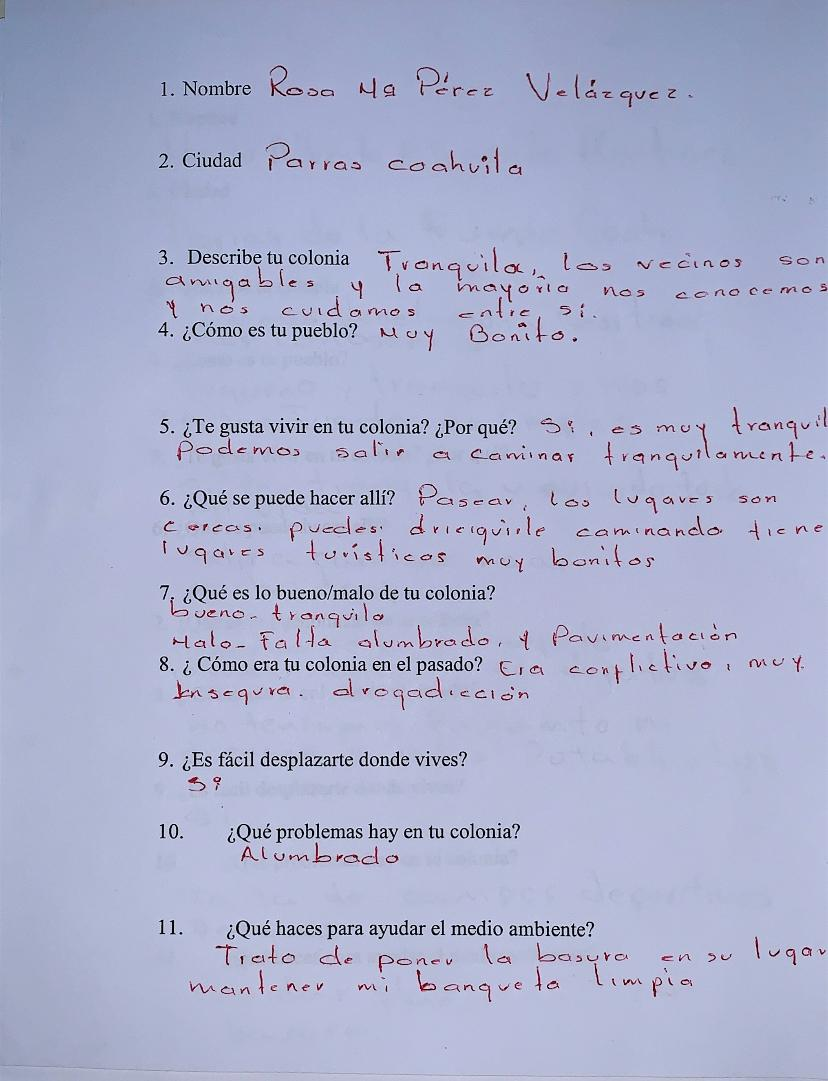 1. Nombre Rosa Ma Pérez Velázquez.
2. Ciudad Parras coahuila
3. Describe tu colonia Tranquila, los vecinos son
amigables y la mayoría nos conocemos
Y nos cuidamos entre sí.
4. ¿Cómo es tu pueblo? Muy Bonito.
5. ¿Te gusta vivir en tu colonia? ¿Por qué? Si, es muy tranquil
Podemos salir a caminar tranquilamente.
6. ¿Qué se puede hacer allí? Pasear, los lugares son
cercas. puedes driciguirle caminando tiene
lugares turísticos muy bonitos
7. ¿Qué es lo bueno/malo de tu colonia?
bueno- tranquilo
Malo- Falta alumbrado, y Pavimentación
8. ¿ Cómo era tu colonia en el pasado? Era conflictivo, muy
Insegura. drogadicción
9. ¿Es fácil desplazarte donde vives?
Si
10. ¿Qué problemas hay en tu colonia?
Alumbrado
11. ¿Qué haces para ayudar el medio ambiente?
Trato de poner la basura en su lugar
mantener mi banqueta limpia